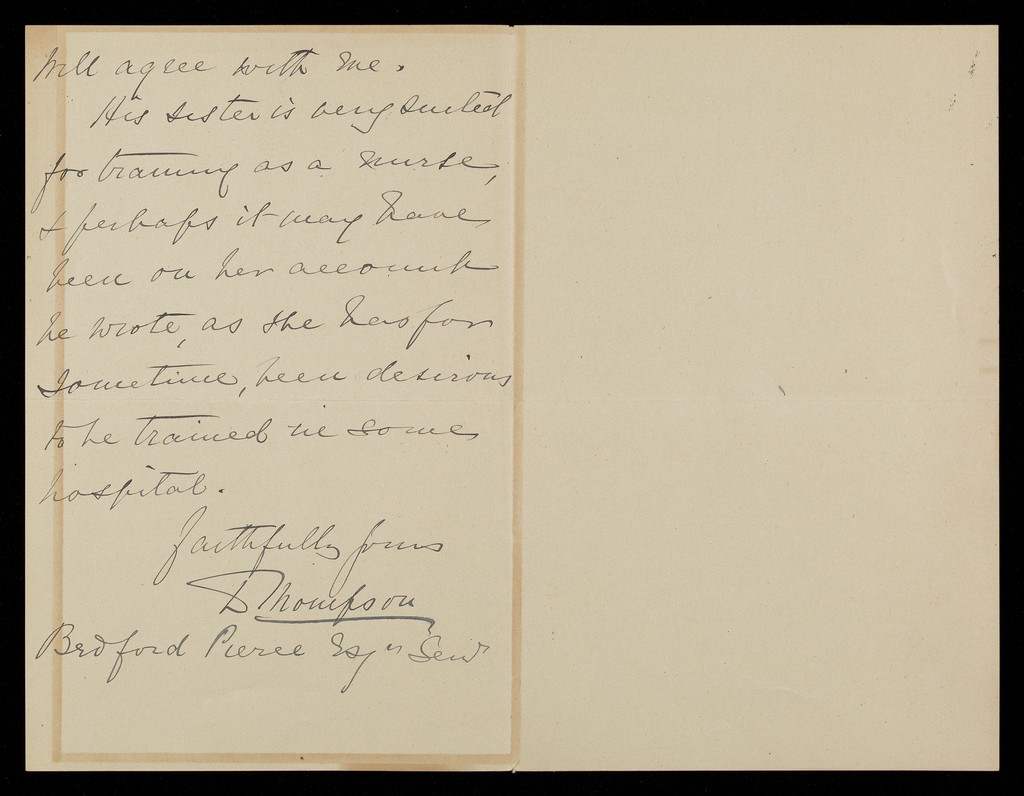 will agree with me.
His sister is very suited
for training as a nurse,
& perhaps it may have
been on her account
he wrote, as she has for
sometime, been desirous
to be trained in some
hospital.
Faithfully yours
D Thompson
Bedford Pierce Esqr Senr